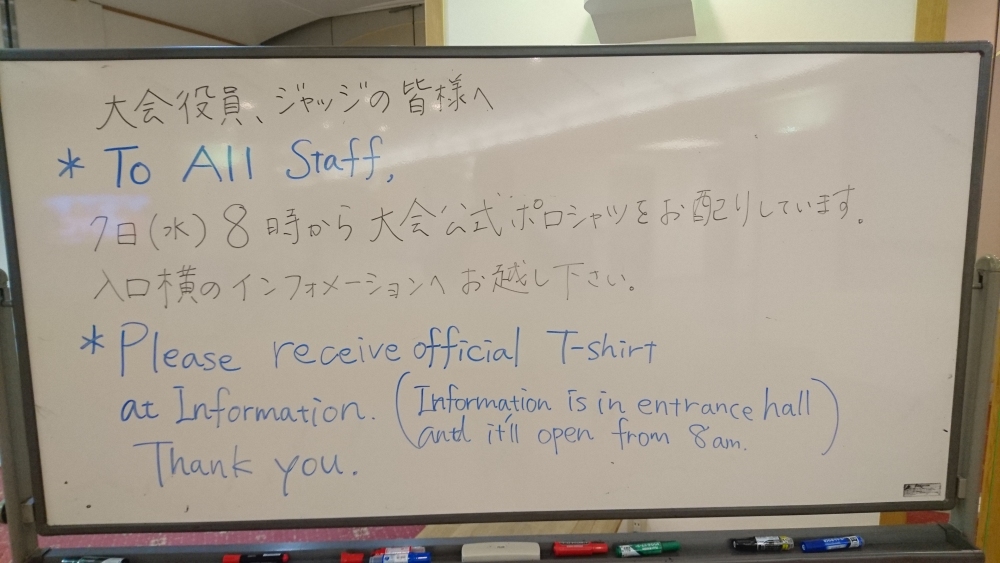 大会役員、ジャッジの皆様へ
* To All Staff,
7日(水) 8時から大会公式ポロシャツをお配りしています。
入口横のインフォメーションへお越し下さい。
* Please receive official T-shirt
at Information. (Information is in entrance hall
and it'll open from 8am.)
Thank you.